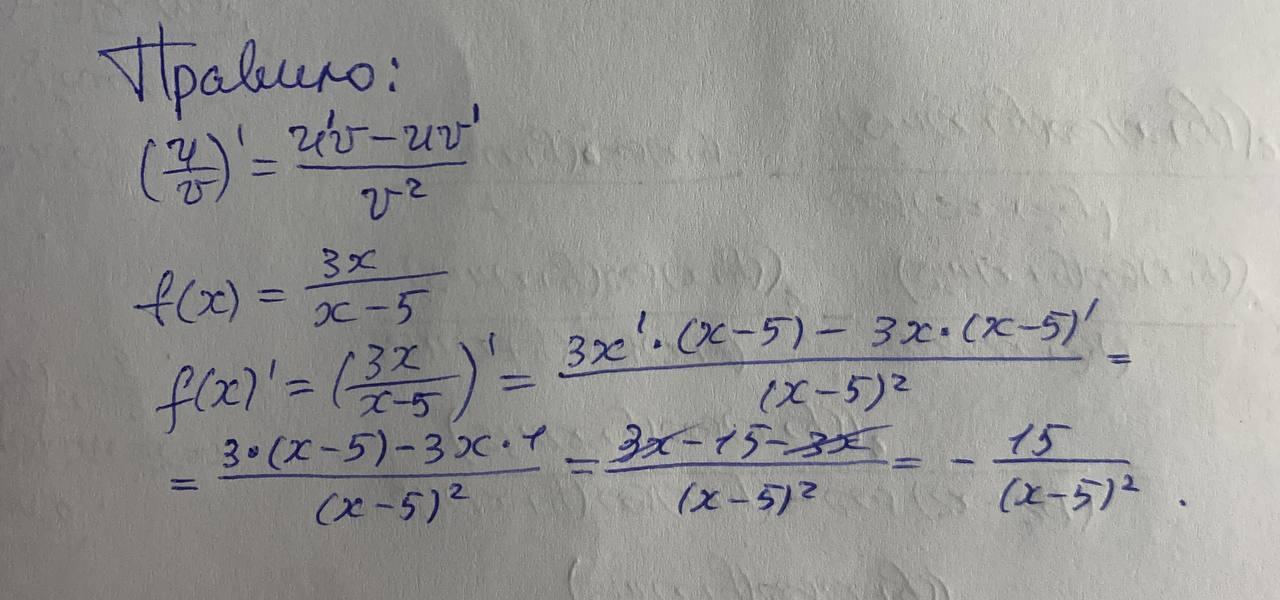 Правило:
(u/v)' = (u'v - uv')/v²
f(x) = 3x/(x-5)
f(x)' = (3x/(x-5))' = (3x'·(x-5) - 3x·(x-5)')/(x-5)² =
= (3·(x-5) - 3x·1)/(x-5)² = (3x-15-3x)/(x-5)² = - 15/(x-5)².